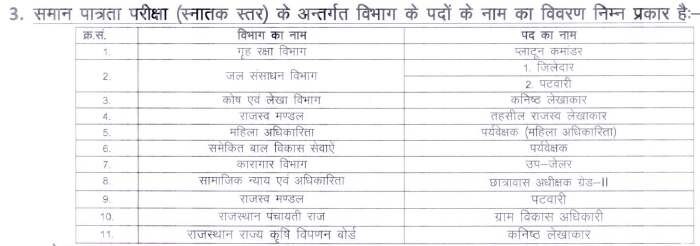 3. समान पात्रता परीक्षा (स्नातक स्तर) के अन्तर्गत विभाग के पदों के नाम का विवरण निम्न प्रकार हैः–
क्र.सं. विभाग का नाम पद का नाम
1. गृह रक्षा विभाग प्लाटून कमांडर
2. जल संसाधन विभाग 1. जिलेदार
2. पटवारी
3. कोष एवं लेखा विभाग कनिष्ठ लेखाकार
4. राजस्व मण्डल तहसील राजस्व लेखाकार
5. महिला अधिकारिता पर्यवेक्षक (महिला अधिकारिता)
6. समेकित बाल विकास सेवाऐं पर्यवेक्षक
7. कारागार विभाग उप–जेलर
8. सामाजिक न्याय एवं अधिकारिता छात्रावास अधीक्षक ग्रेड–II
9. राजस्व मण्डल पटवारी
10. राजस्थान पंचायती राज ग्राम विकास अधिकारी
11. राजस्थान राज्य कृषि विपणन बोर्ड कनिष्ठ लेखाकार